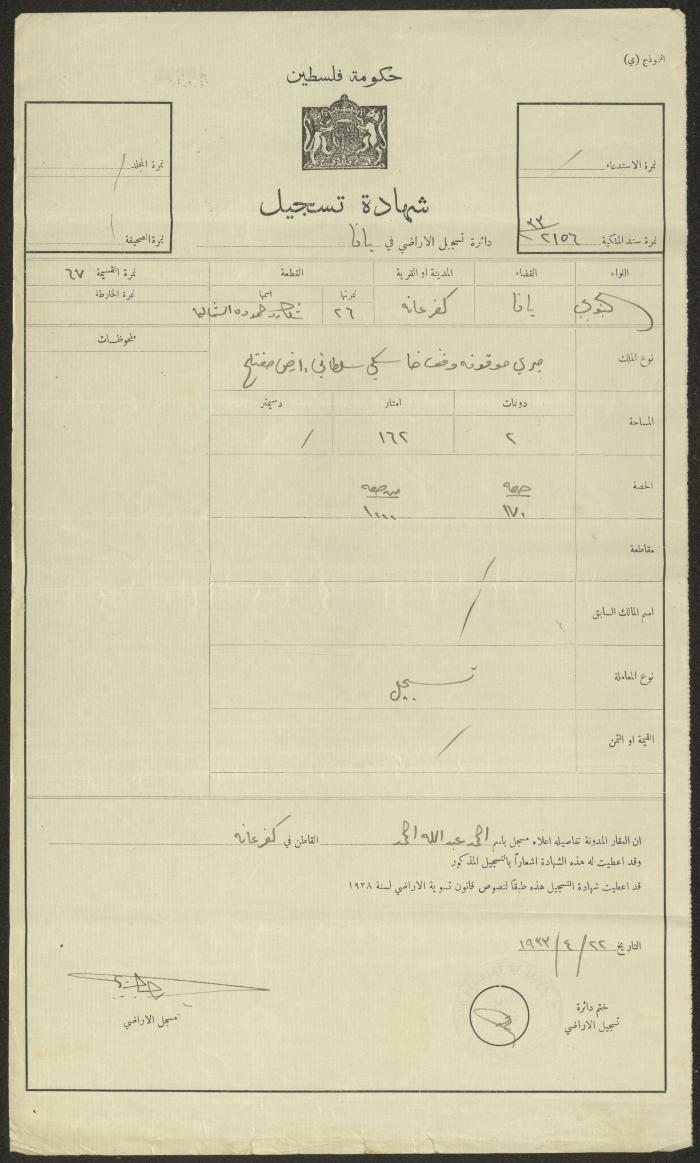 النموذج (ي)
حكومة فلسطين
شهادة تسجيل
نمرة الاستدعاء /
نمرة المجلد /
نمرة سند الملكية ٢١٥٦ / ٣٣
نمرة الصحيفة
دائرة تسجيل الاراضي في يافا
اللواء القضاء المدينة او القرية القطعة نمرة القسيمة ٦٧
نمرتها اسمها نمرة الخارطة
الجنوبي يافا كفرعانه ٢٦ حموده الشماليه
نوع الملك
ميري موقوفه وقف خاسكي سلطاني
ملحوظات
المساحة
دونمات امتار دسيمتر
٢ ١٦٢ /
الحصة
حصه من حصه
١٧٠ ١٠٠٠
مقاطعة /
اسم المالك السابق /
نوع المعاملة تسجيل
القيمة او الثمن /
ان العقار المدونة تفاصيله اعلاه مسجل باسم احمد عبد الله احمد القاطن في كفرعانه
وقد اعطيت له هذه الشهادة اشعاراً بالتسجيل المذكور
قد اعطيت شهادة التسجيل هذه طبقا لنصوص قانون تسوية الاراضي لسنة ١٩٢٨
التاريخ ٢٢/٤/١٩٣٣
ختم دائرة
تسجيل الاراضي
مسجل الاراضي